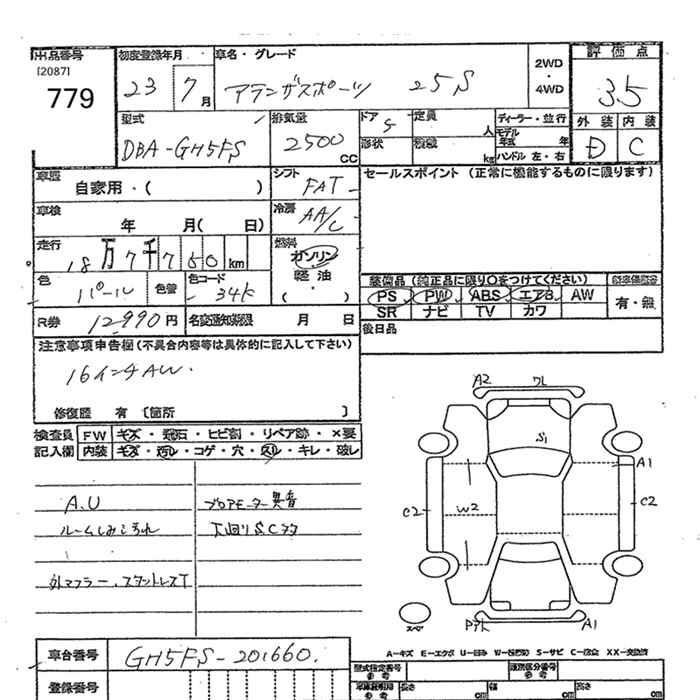 出品番号 初度登録年月 車名・グレード 2WD・4WD 評価点
[2087]
779
23 7月 アテンザスポーツ 25S 3.5
型式 排気量 ドア 定員 ディーラー・並行 外装 内装
DBA-GH5FS 2500 CC 5 人 モデル年式 年
形状 積載 kg ハンドル 左・右 D C
車歴 自家用・( ) シフト FAT セールスポイント (正常に機能するものに限ります)
車検 年 月( 日) 冷房 AA/C
走行 18万7千760 km 燃料 ガソリン 軽油 ( )
色 パール 色替 色コード 34K
装備品 (純正品に限り○をつけてください)
PS PW ABS エアB AW 有・無
SR ナビ TV カワ
R券 12990円 名変通知期限 月 日 後日品
注意事項申告欄 (不具合内容等は具体的に記入して下さい)
16インチAW.
修復歴 有 〔箇所 〕
検査員 FW キズ・飛石・ヒビ割・リペア跡・×要
記入欄 内装 キズ・汚れ・コゲ・穴・スレ・キレ・破レ
A.U ブロアモーター異音
ルームしみ汚れ 下回りS.Cタタ
外マフラー、スタットレスT
A2 ワレ
S1
A1
C2 W2 C2
スペア A1
A-キズ E-エクボ U-凹み W-波 S-サビ C-腐食 XX-交換済
車台番号 GH5FS-201660.
型式指定番号 参考 類別区分番号 参考
登録番号 参考 長さ cm 幅 cm 高さ cm